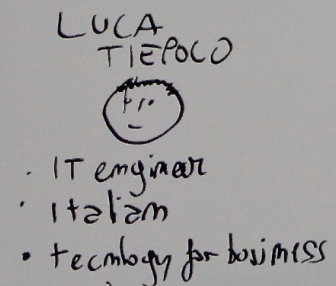 LUCA
TIEPOLO
• IT engineer
• Italian
• tecnology for business